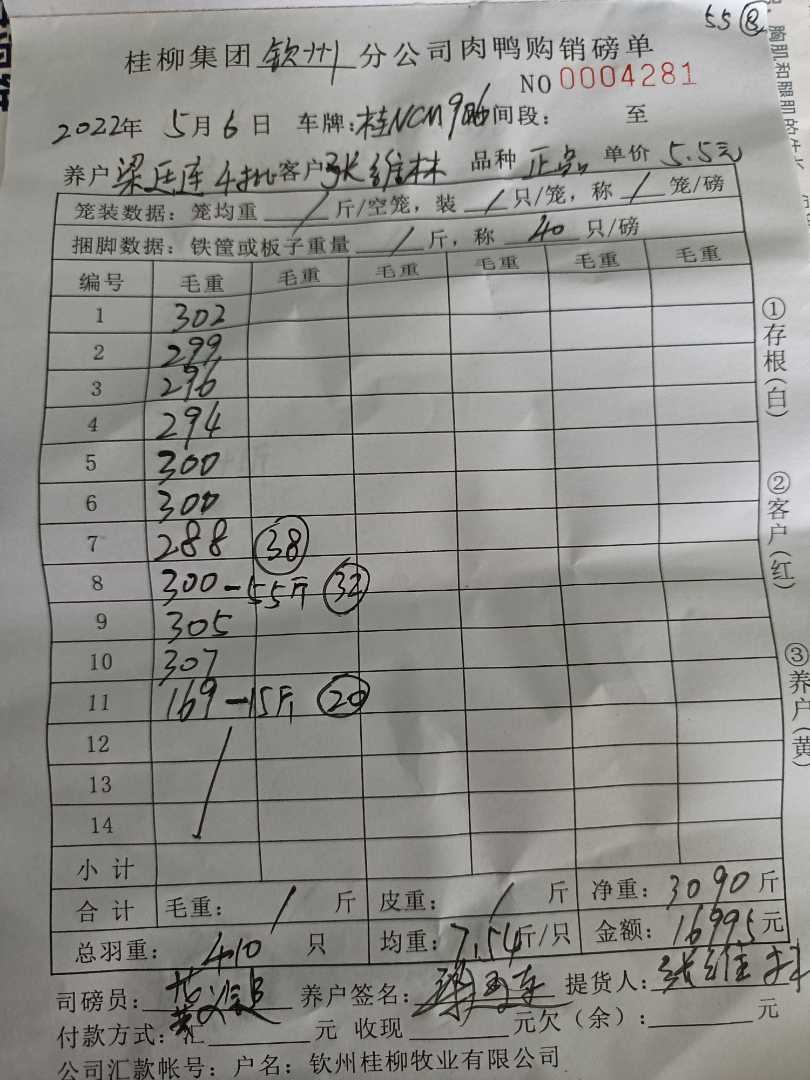 55 8
桂柳集团 钦州 分公司肉鸭购销磅单
NO 0004281
2022年 5月 6 日 车牌:桂NCM9 间段: 至
养户 梁廷库 4批 客户 张维林 品种 正品 单价 5.5元
笼装数据:笼均重 / 斤/空笼,装 / 只/笼,称 / 笼/磅
捆脚数据:铁筐或板子重量 / 斤,称 40 只/磅
编号 毛重 毛重 毛重 毛重 毛重 毛重
1 302
2 299
3 296
4 294
5 300
6 300
7 288 38
8 300-55斤 32
9 305
10 307
11 169-15斤 20
12
13
14
小计
合计 毛重: / 斤 皮重: / 斤 净重:3090斤
总羽重: 410 只 均重:7.54斤/只 金额:16995元
司磅员: 养户签名: 提货人:张维林
付款方式:汇 元 收现 元欠(余): 元
公司汇款帐号:户名:钦州桂柳牧业有限公司
①存根(白)
②客户(红)
③养户(黄)